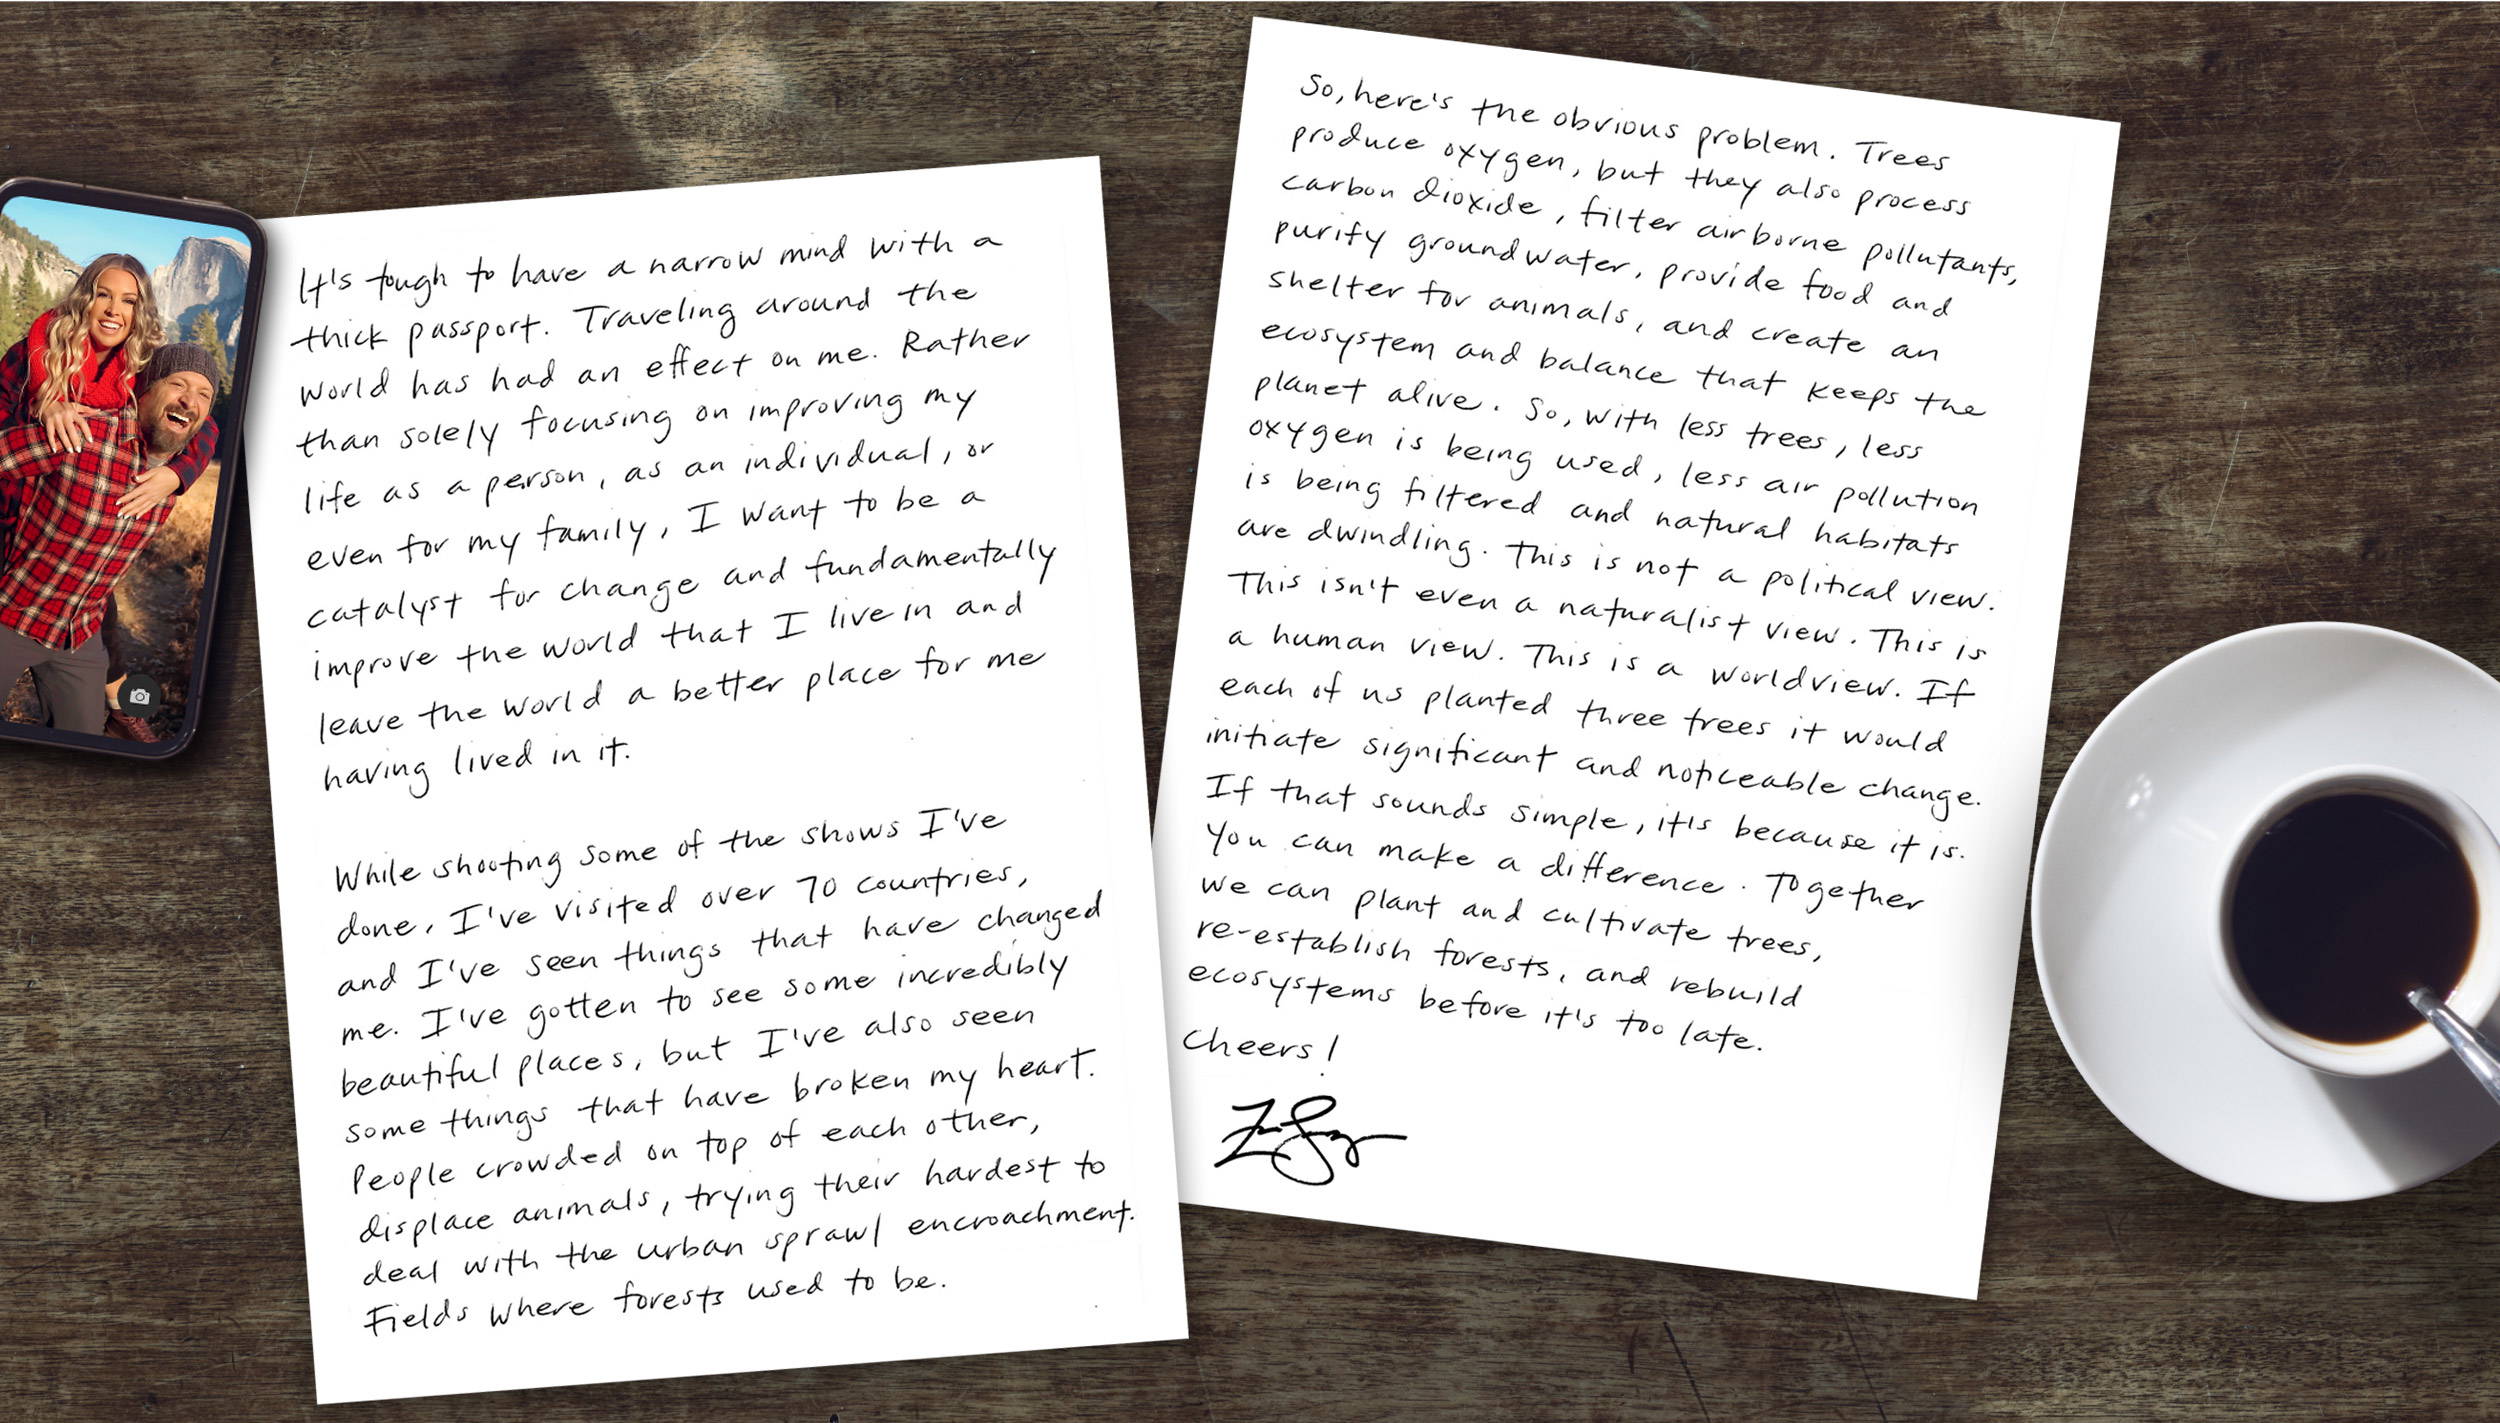 It's tough to have a narrow mind with a
thick passport. Traveling around the
world has had an effect on me. Rather
than solely focusing on improving my
life as a person, as an individual, or
even for my family, I want to be a
catalyst for change and fundamentally
improve the world that I live in and
leave the world a better place for me
having lived in it.
While shooting some of the shows I've
done, I've visited over 70 countries,
and I've seen things that have changed
me. I've gotten to see some incredibly
beautiful places, but I've also seen
some things that have broken my heart.
People crowded on top of each other,
displace animals, trying their hardest to
deal with the urban sprawl encroachment.
Fields where forests used to be.
So, here's the obvious problem. Trees
produce oxygen, but they also process
carbon dioxide, filter airborne pollutants,
purify groundwater, provide food and
shelter for animals, and create an
ecosystem and balance that keeps the
planet alive. So, with less trees, less
oxygen is being used, less air pollution
is being filtered and natural habitats
are dwindling. This is not a political view.
This isn't even a naturalist view. This is
a human view. This is a worldview. If
each of us planted three trees it would
initiate significant and noticeable change.
If that sounds simple, it's because it is.
You can make a difference. Together
we can plant and cultivate trees,
re-establish forests, and rebuild
ecosystems before it's too late.
Cheers!